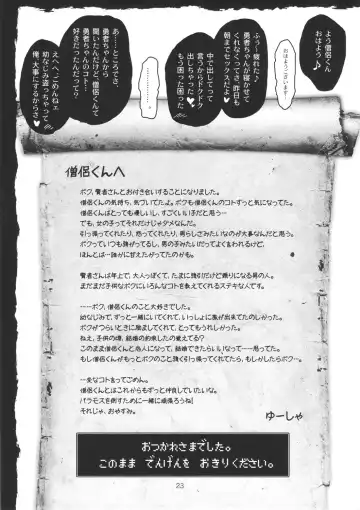 よう僧侶くん
おはよう♪
おはようございます
ふぅ〜疲れた♪
勇者ちゃんが寝かせて
くれなくってさ、昨日も
朝までセックスしたよ
中で出してって
言うからドクドク
出しちゃった♥
もう困った困った
………。
あ…ところでさ、
勇者ちゃんから
聞いたんだけど、僧侶くんて
勇者ちゃんのコト…
好きだったんだって？
えへへ、ごめんねェ
幼なじみ奪っちゃって
俺、大事にするからさ♥
僧侶くんへ
ボク、賢者さんとお付き合いすることになりました。
僧侶くんの気持ち、気づいてたよ。僧侶くんのコトずっと気になってた。
僧侶くんはとっても優しいし、すごくいい子だと思う…
でも、女の子ってそれだけじゃダメなんだ。
引っ張ってくれたり、怒ってくれたり、男らしさみたいなのが大事なんだと思う。
ボクっていつも強がってるし、男の子みたいだってよく言われるけど、
ほんとは…誰かに甘えたがってたのかも。
賢者さんは年上で、大人っぽくて、たまに強引だけど頼りになる男の人。
まだまだ子供なボクにいろんなコトを教えてくれるステキな人です。
……ボク、僧侶くんのこと大好きでした。
幼なじみで、ずっと一緒にいてくれて、いっしょに旅が出来てたのしかった。
ボクがつらいときに励ましてくれて、とってもうれしかった。
ねぇ、子供の頃、結婚の約束したの覚えてる？
このまま僧侶くんと恋人になって、結婚できたらなって……思ってた。
もし僧侶くんがもっとボクのこと強く引っ張ってくれてたら、もしかしたらボク…
…変なコト言ってごめん。
僧侶くんとはこれからもずっと仲良していたいな。
バラモスを倒すために一緒に頑張ろうね！
それじゃ、おやすみ。
ゆーしゃ
おつかれさまでした。
このまま でんげんを おきりください。
23